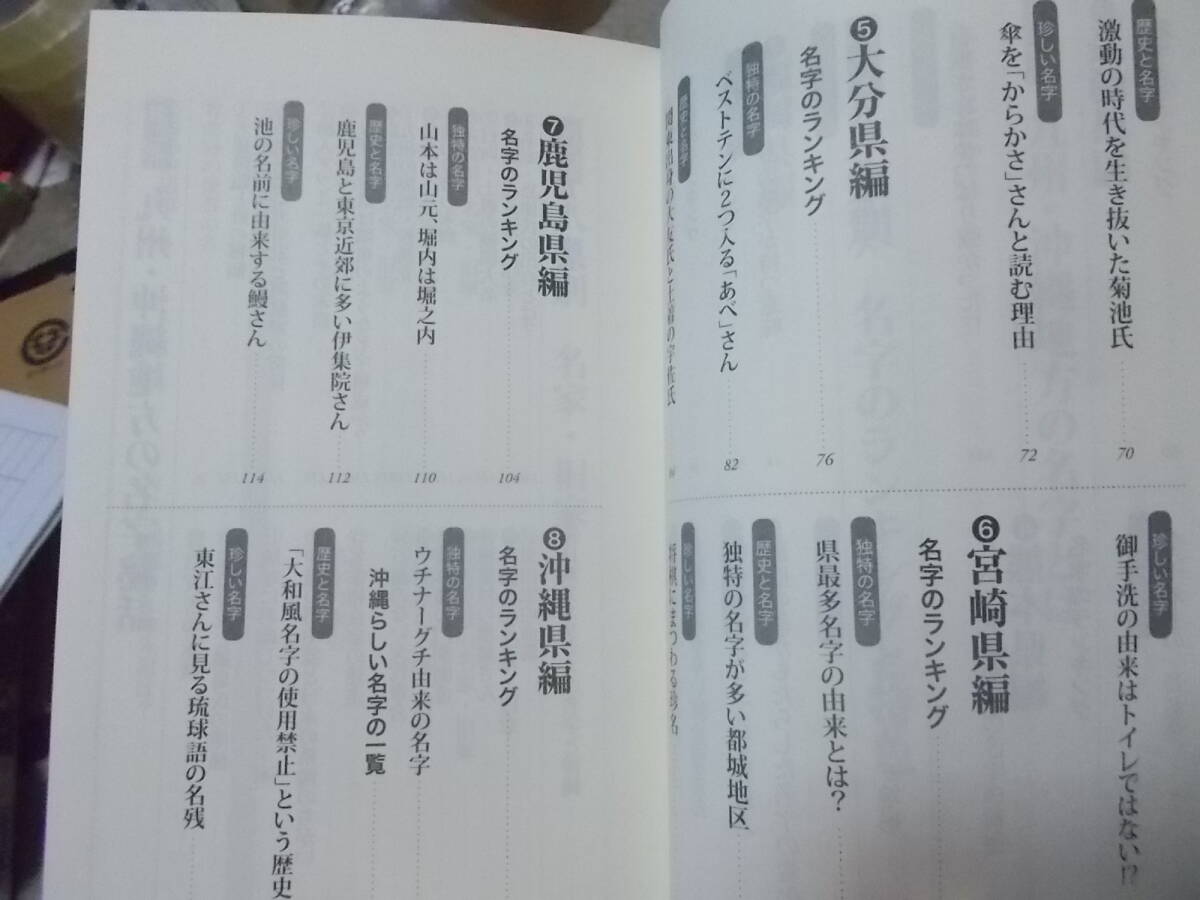 歴史と名字
激動の時代を生き抜いた菊池氏 70
珍しい名字
傘を「からかさ」さんと読む理由 72
❺大分県編
名字のランキング 76
独特の名字
ベストテンに2つ入る「あべ」さん 82
歴史と名字
珍しい名字
御手洗の由来はトイレではない!?
❻宮崎県編
名字のランキング
独特の名字
県最多名字の由来とは?
歴史と名字
独特の名字が多い都城地区
珍しい名字
❼鹿児島県編
名字のランキング 104
独特の名字
山本は山元、堀内は堀之内 110
歴史と名字
鹿児島と東京近郊に多い伊集院さん 112
珍しい名字
池の名前に由来する鰻さん 114
❽沖縄県編
名字のランキング
独特の名字
ウチナーグチ由来の名字
沖縄らしい名字の一覧
歴史と名字
「大和風名字の使用禁止」という歴史
珍しい名字
東江さんに見る琉球語の名残